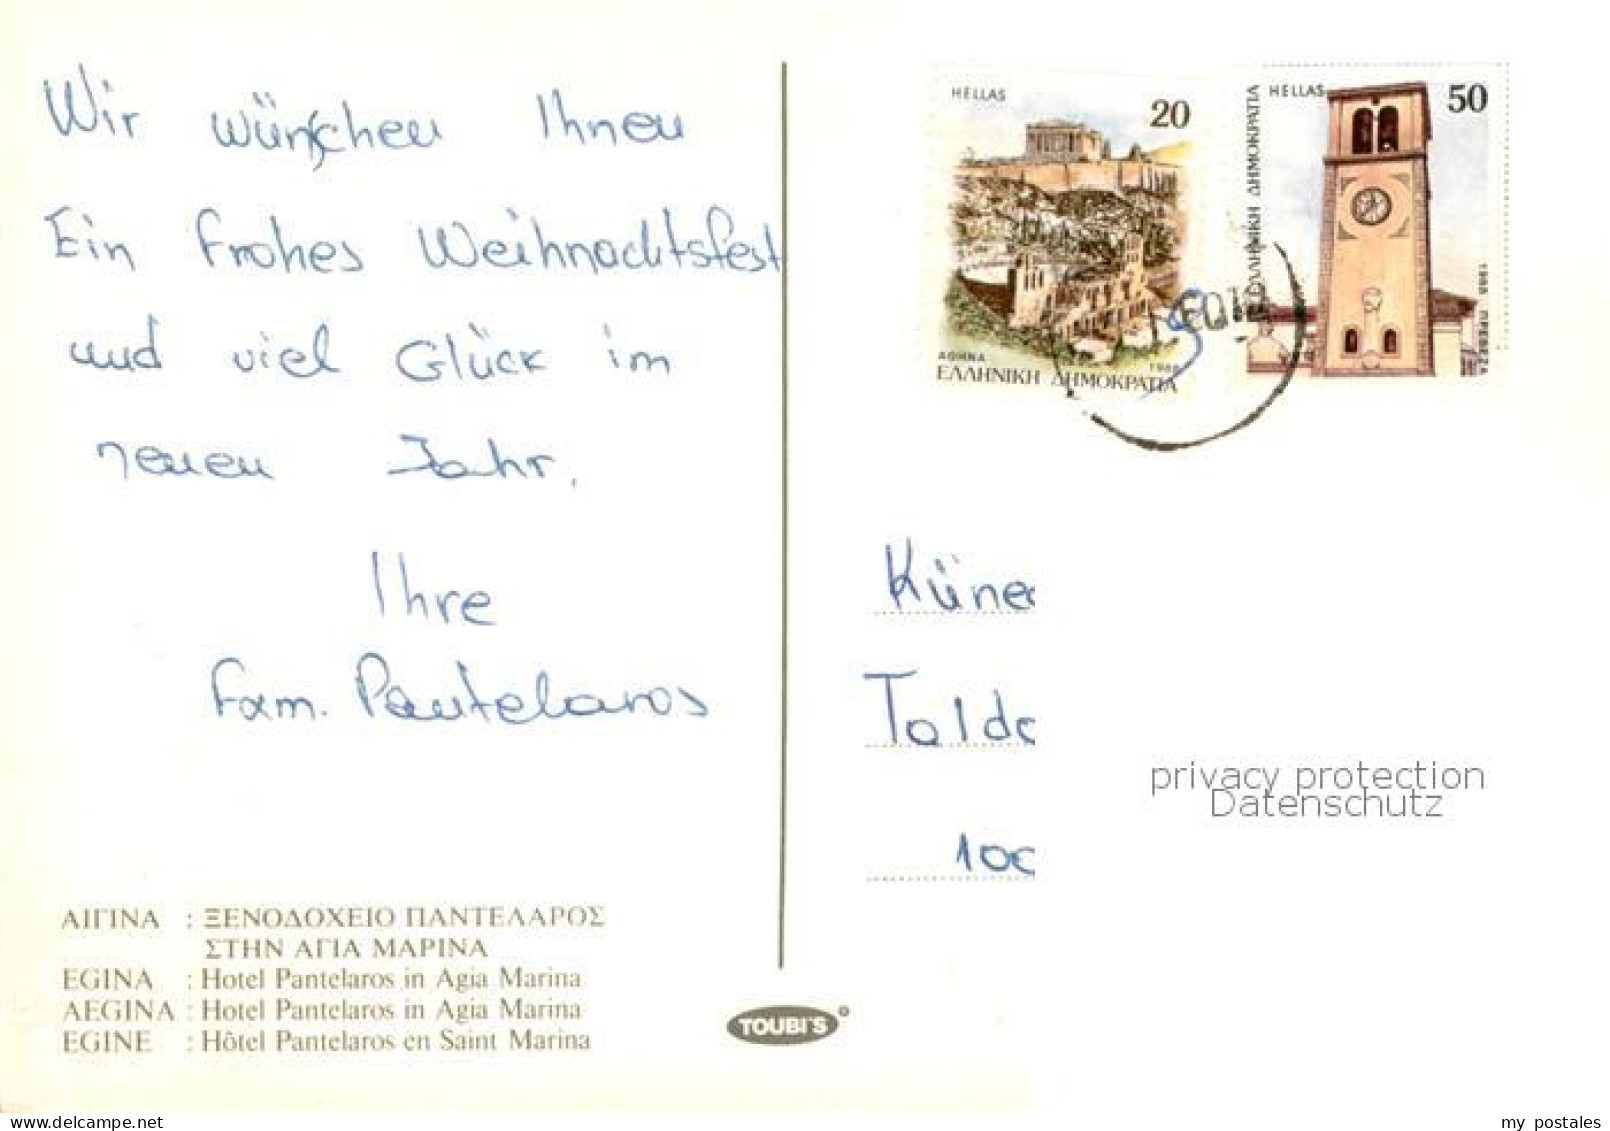 Wir wünschen Ihnen
Ein frohes Weihnachtsfest
und viel Glück im
neuen Jahr.
Ihre
Fam. Pantelaros
ΑΙΓΙΝΑ : ΞΕΝΟΔΟΧΕΙΟ ΠΑΝΤΕΛΑΡΟΣ
ΣΤΗΝ ΑΓΙΑ ΜΑΡΙΝΑ
EGINA : Hotel Pantelaros in Agia Marina
AEGINA : Hotel Pantelaros in Agia Marina
EGINE : Hôtel Pantelaros en Saint Marina
TOUBI'S
HELLAS
20
ΑΘΗΝΑ 1988
ΕΛΛΗΝΙΚΗ ΔΗΜΟΚΡΑΤΙΑ
HELLAS 50
ΕΛΛΗΝΙΚΗ ΔΗΜΟΚΡΑΤΙΑ
1988 ΠΡΕΒΕΖΑ
privacy protection
Datenschutz
www.delcampe.net
my_postales